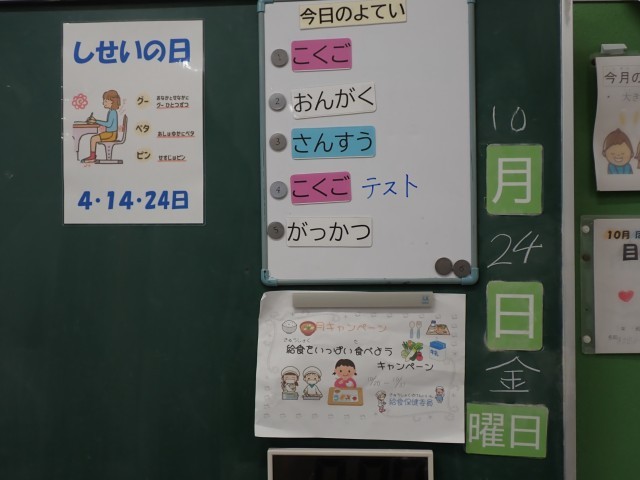 しせいの日
グー
おなかとせなかと
グーひとつずつ
ペタ
あしはゆかにペタ
ピン
せすじはピン
4・14・24日
今日のよてい
1 こくご
2 おんがく
3 さんすう
4 こくご テスト
5 がっかつ
キャンペーン
給食をいっぱい食べよう
キャンペーン
給食保健委員
10
月
24
日
金
曜日
今月の
10月
目